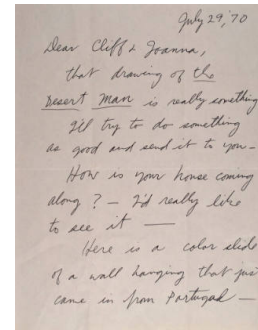 July 29, '70
Dear Cliff & Joanna,
that drawing of the
Desert Man is really something
I'll try to do something
as good and send it to you—
How is your house coming
along? — I'd really like
to see it —
Here is a color slide
of a wall hanging that jus
came in from Portugal —